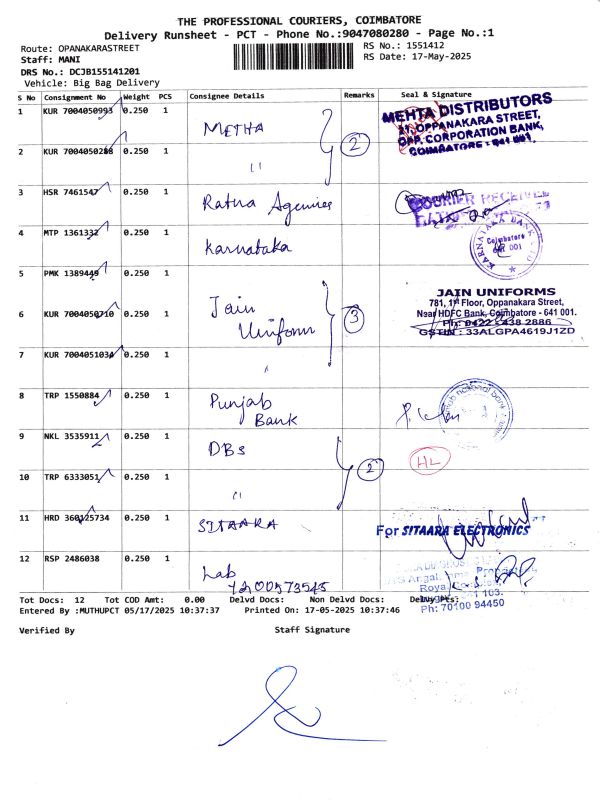 THE PROFESSIONAL COURIERS, COIMBATORE
Delivery Runsheet - PCT - Phone No.:9047080280 - Page No.:1
Route: OPANAKARASTREET
RS No.: 1551412
Staff: MANI
RS Date: 17-May-2025
DRS No.: DCJB155141201
Vehicle: Big Bag Delivery
S No Consignment No Weight PCS Consignee Details Remarks Seal & Signature
1 KUR 7004050993 0.250 1 METHA
MEHTA DISTRIBUTORS
OPPANAKARA STREET,
OPP. CORPORATION BANK,
COIMBATORE - 641 001.
2
2 KUR 7004050288 0.250 1 "
3 HSR 7461547 0.250 1 Ratna Agencies
COURIER RECEIVED
4 MTP 1361332 0.250 1 Karnataka
KARNATAKA BANK LTD
Coimbatore
641 001
5 PMK 1389449 0.250 1
6 KUR 7004050710 0.250 1 Jain
Uniform
3
JAIN UNIFORMS
781, 1st Floor, Oppanakara Street,
Near HDFC Bank, Coimbatore - 641 001.
Ph: 0422 - 438 2886
GSTIN : 33ALGPA4619J1ZD
7 KUR 7004051034 0.250 1 "
8 TRP 1550884 0.250 1 Punjab
Bank
9 NKL 3535911 0.250 1 DBs
2
HL
10 TRP 6333051 0.250 1 "
11 HRD 360125734 0.250 1 SITAARA
For SITAARA ELECTRONICS
12 RSP 2486038 0.250 1 Lab
Ph: 70100 94450
Tot Docs: 12 Tot COD Amt: 0.00 Delvd Docs: Non Delvd Docs: Delvy Pts:
Entered By :MUTHUPCT 05/17/2025 10:37:37 Printed On: 17-05-2025 10:37:46
Verified By Staff Signature